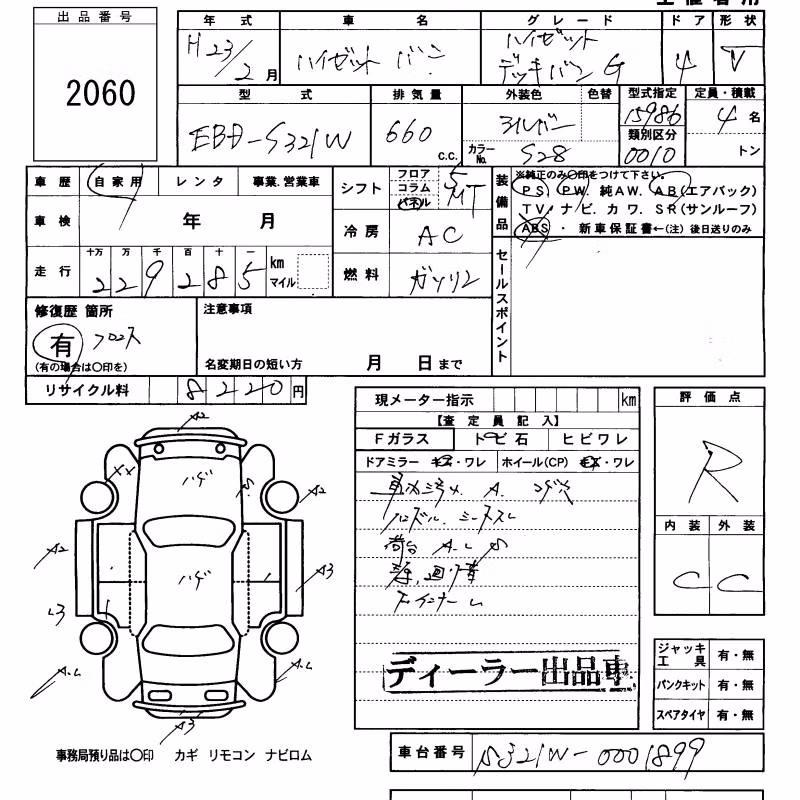 出品番号
2060
年式 車名 グレード ドア 形状
H23/2月 ハイゼット バン ハイゼット デッキバン G 4 V
型式 排気量 外装色 色替 型式指定 定員・積載
EBD-S321W 660 c.c. シルバー 15986 4名
カラーNo. S28 類別区分 0010 トン
車歴 自家用 レンタ 事業.営業車 シフト フロア コラム パネル 5 MT 装備品 ※純正のみ〇印をつけて下さい。
PS. PW. 純AW. AB(エアバック)
TV. ナビ. カワ. SR(サンルーフ)
ABS ・ 新車保証書←(注) 後日送りのみ
車検 年 月 冷房 AC
走行 十万 万 千 百 十 一 km マイル 燃料 ガソリン セールスポイント
229285
修復歴 箇所 注意事項
有 フロアス
(有の場合は〇印を) 名変期日の短い方 月 日まで
リサイクル料 8220円
現メーター指示 km 評価点
【査定員記入】
Fガラス トビ石 ヒビワレ R
ドアミラー キズ・ワレ ホイール(CP) キズ・ワレ
車内汚れ A. コゲ穴
ハンドル. シートスレ
荷台 A.L S
内装 外装
C C
A2
ハゲ
S
XX
A2
A2
ハゲ
A3
L3
A.L
A.L
A3
ディーラー出品車
ジャッキ工具 有・無
パンクキット 有・無
スペアタイヤ 有・無
事務局預り品は〇印 カギ リモコン ナビロム
車台番号 S321W-0001899